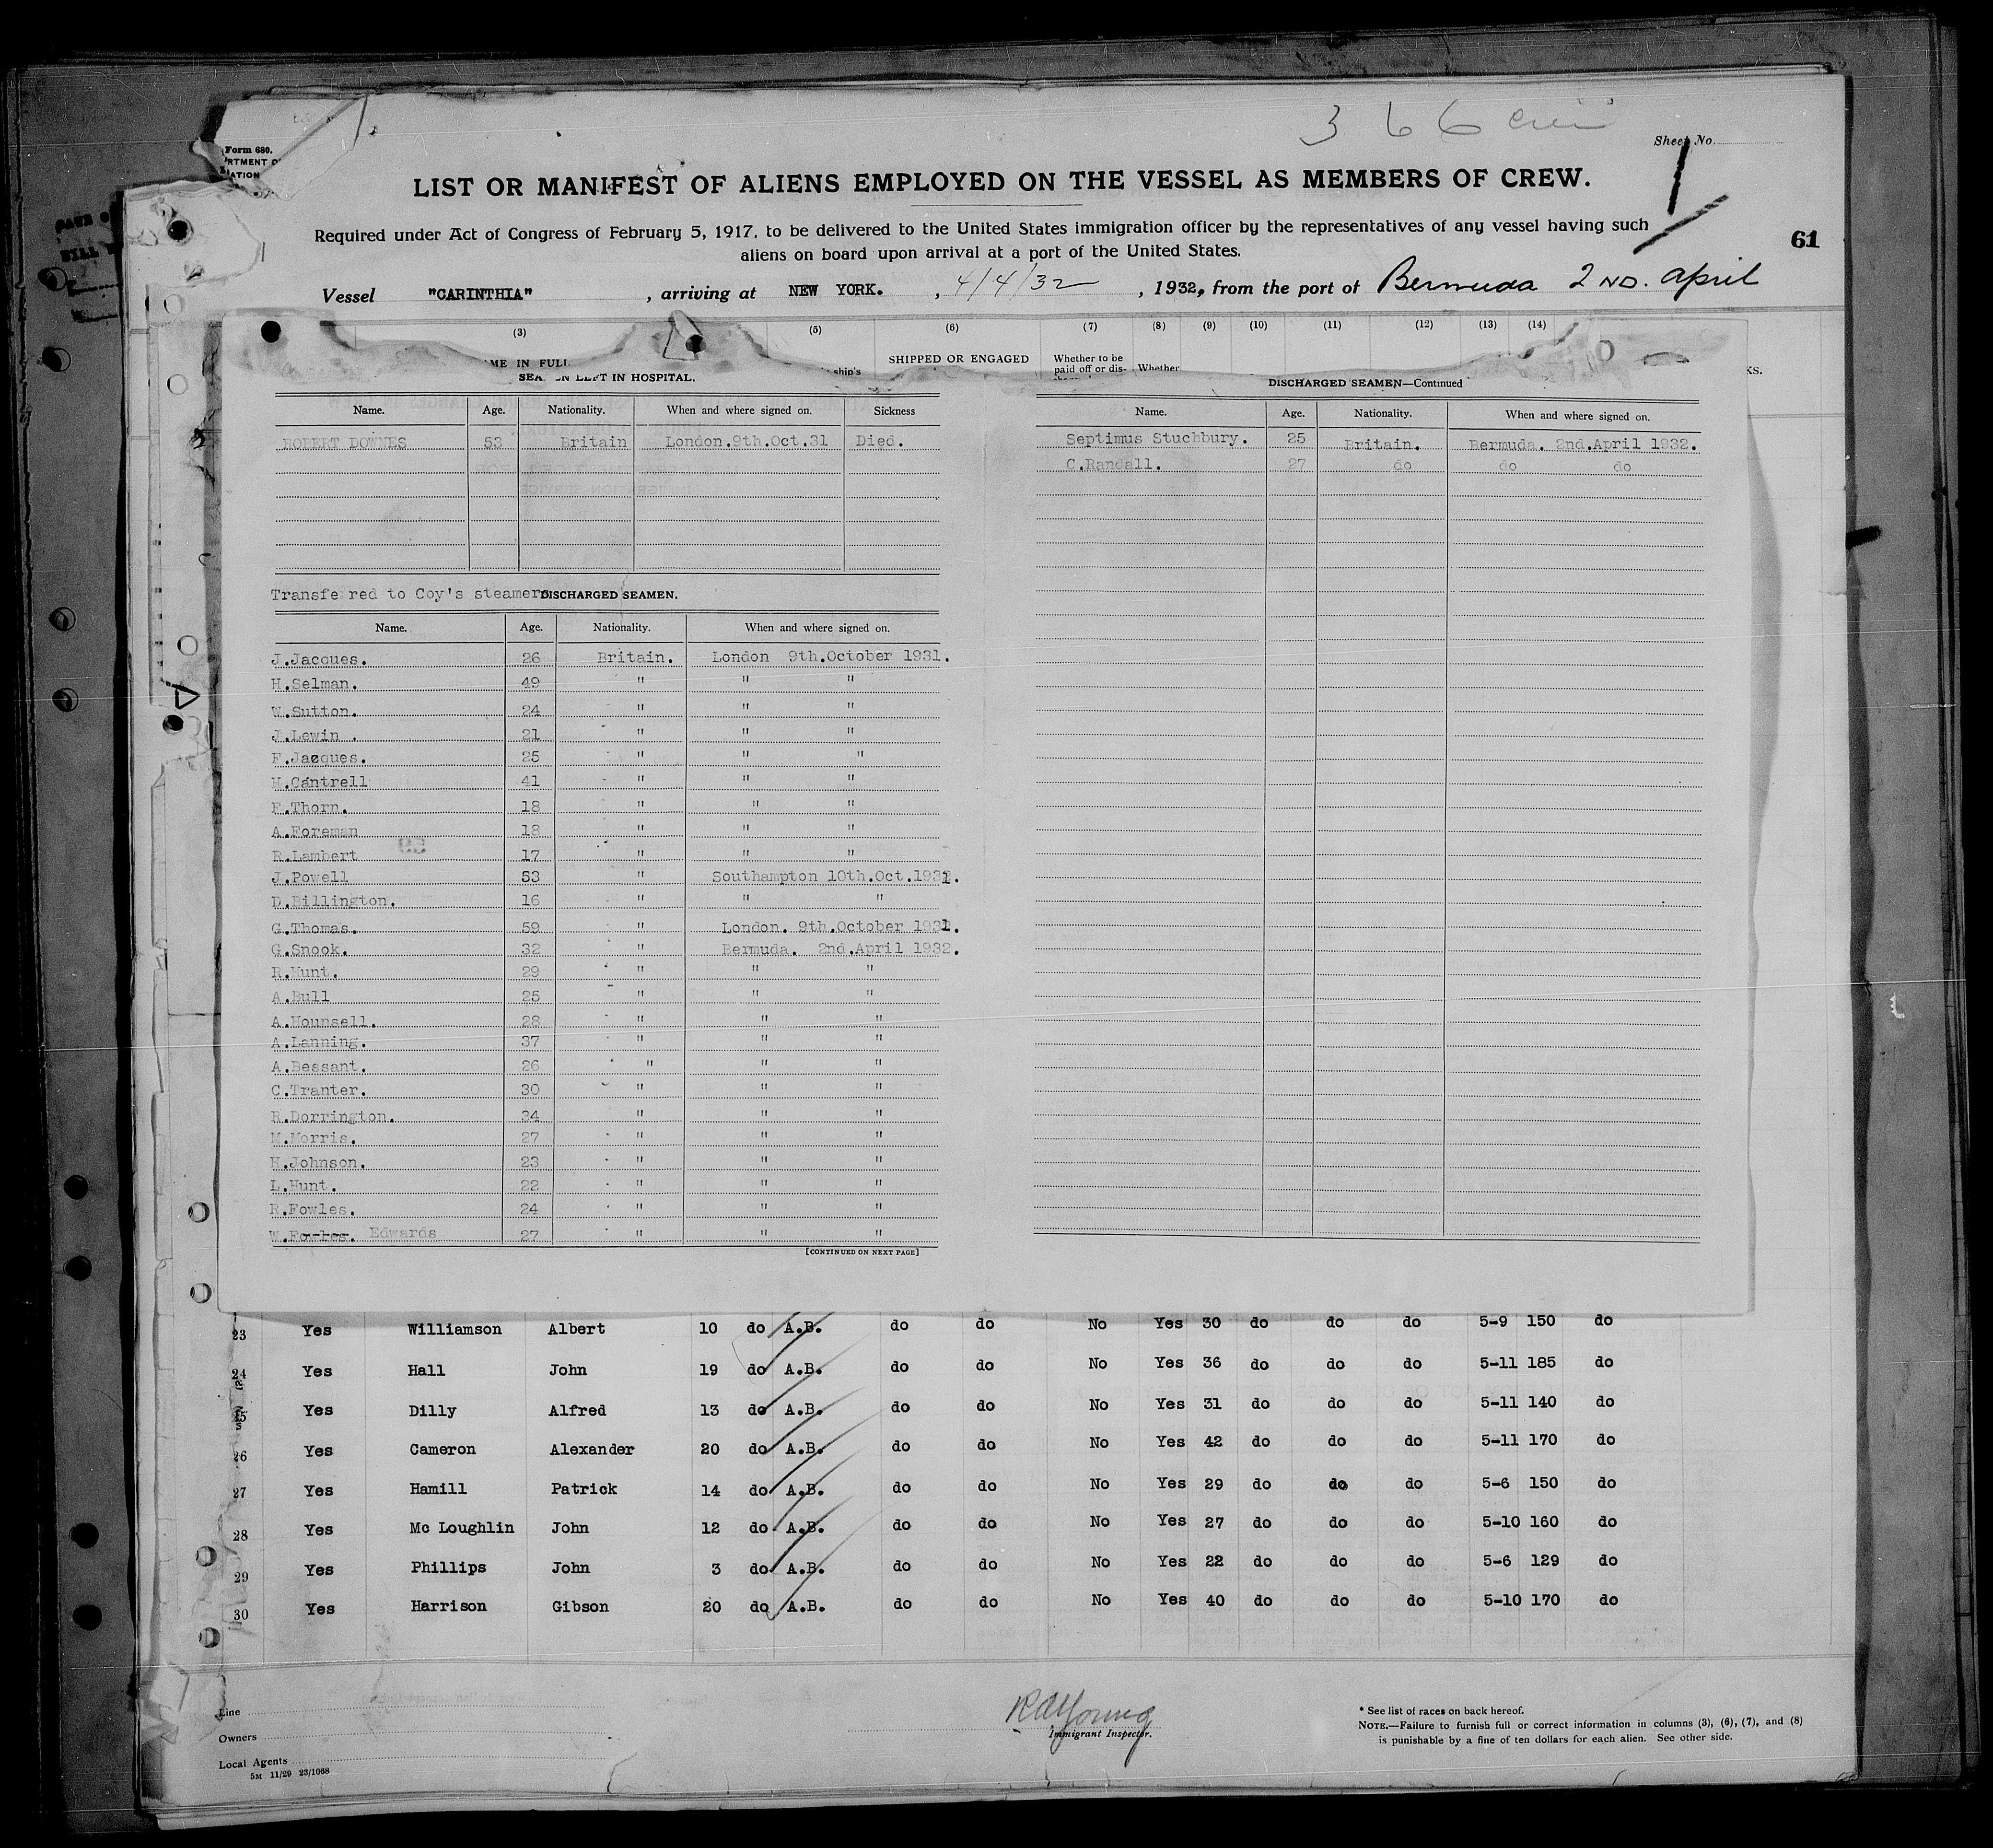 3 6 6
Sheet No.
Form 680.
LIST OR MANIFEST OF ALIENS EMPLOYED ON THE VESSEL AS MEMBERS OF CREW.
Required under Act of Congress of February 5, 1917, to be delivered to the United States immigration officer by the representatives of any vessel having such
aliens on board upon arrival at a port of the United States.
61
Vessel "CARINTHIA" , arriving at NEW YORK. , 4/4/32 , 1932, from the port of Bermuda 2 ND. april
(3) (5) (6) (7) (8) (9) (10) (11) (12) (13) (14)
ME IN FULL ship's SHIPPED OR ENGAGED Whether to be paid off or dis- Whether KS.
SEA N LEFT IN HOSPITAL. DISCHARGED SEAMEN—Continued
Name. Age. Nationality. When and where signed on. Sickness Name. Age. Nationality. When and where signed on.
ROBERT DOWNES 53 Britain London.9th.Oct.31 Died. Septimus Stuchbury. 25 Britain. Bermuda. 2nd.April 1932.
C.Randall. 27 do do do
Transfe red to Coy's steamers DISCHARGED SEAMEN.
Name. Age. Nationality. When and where signed on.
J.Jacques. 26 Britain. London 9th.October 1931.
H.Selman. 49 " " "
W.Sutton. 24 " " "
J.Lewin . 21 " " "
F.Jacques. 25 " " "
M.Cantrell 41 " " "
F.Thorn. 18 " " "
A.Foreman 18 " " "
R.Lambert 17 " " "
J.Powell 53 " Southampton 10th.Oct.1931.
D.Billington. 16 " " "
G.Thomas. 59 " London. 9th.October 1931.
G.Snook. 32 " Bermuda. 2nd.April 1932.
R.Hunt. 29 " " "
A.Bull 25 " " "
A.Hounsell. 28 " " "
A.Lanning. 37 " " "
A.Bessant. 26 " " "
C.Tranter. 30 " " "
R.Dorrington. 34 " " "
M.Morris. 27 " " "
H.Johnson. 23 " " "
L.Hunt. 22 " " "
R.Fowles. 24 " " "
W. Edwards 27 " " "
[CONTINUED ON NEXT PAGE]
23 Yes Williamson Albert 10 do A.B. do do No Yes 30 do do do 5-9 150 do
24 Yes Hall John 19 do A.B. do do No Yes 36 do do do 5-11 185 do
25 Yes Dilly Alfred 13 do A.B. do do No Yes 31 do do do 5-11 140 do
26 Yes Cameron Alexander 20 do A.B. do do No Yes 42 do do do 5-11 170 do
27 Yes Hamill Patrick 14 do A.B. do do No Yes 29 do do do 5-6 150 do
28 Yes Mc Loughlin John 12 do A.B. do do No Yes 27 do do do 5-10 160 do
29 Yes Phillips John 3 do A.B. do do No Yes 22 do do do 5-6 129 do
30 Yes Harrison Gibson 20 do A.B. do do No Yes 40 do do do 5-10 170 do
Line
Owners
Local Agents
5M 11/29 23/1068
R A Young
Immigrant Inspector.
* See list of races on back hereof.
NOTE.—Failure to furnish full or correct information in columns (3), (6), (7), and (8)
is punishable by a fine of ten dollars for each alien. See other side.